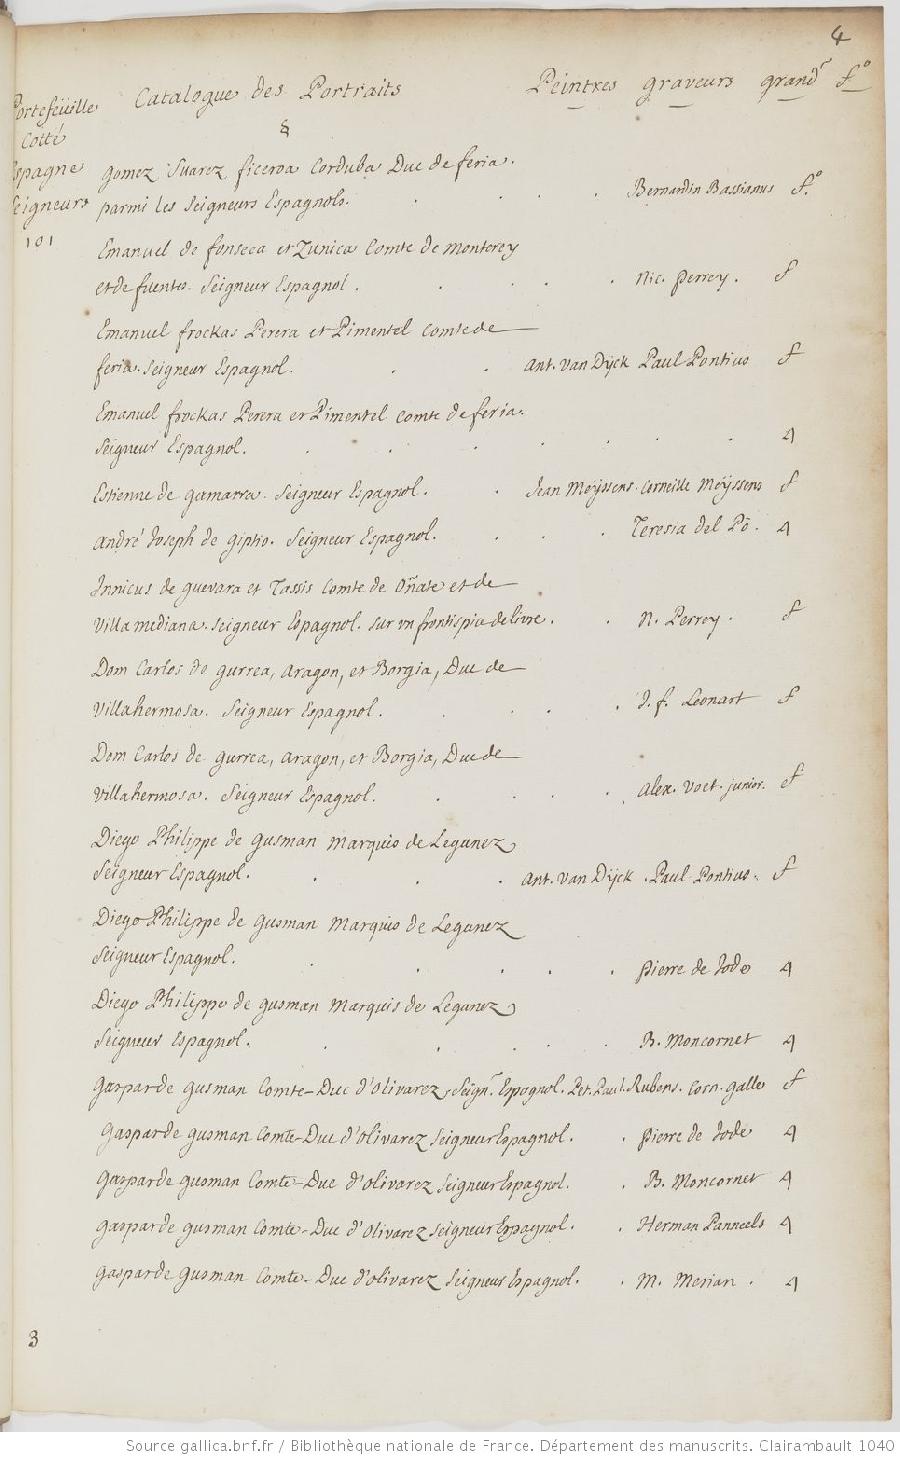 4
Portefeüille Catalogue des Portraits Peintres graveurs grandr fo
Cotté
Espagne
Seigneurs
101
gomez Suarez ficeroa Corduba Duc de feria.
parmi les Seigneurs Espagnols. Bernardin Bassianus fo.
Emanuel de fonseca et Zunica Comte de Monterey
et de fuentes. Seigneur Espagnol. Nic. perrey. f
Emanuel frockas Perera et Pimentel Comte de
feria. Seigneur Espagnol. Ant. van Dÿck Paul Pontius f
Emanuel frockas Perera et Pimentel Comte de feria.
Seigneur Espagnol. 4
Estienne de gamarra. Seigneur Espagnol. Jean Meÿssens. Corneille Meÿssens f
André Joseph de giptio. Seigneur Espagnol. Teresia del Pô. 4
Innicus de guevara et Tassis Comte de Oñate et de
Villa mediana. Seigneur Espagnol. sur un frontispice de livre. N. Perrey. f
Dom Carlos de gurrea, aragon, et Borgia, Duc de
Villahermosa. Seigneur Espagnol. J. f. Leonart f
Dom Carlos de gurrea, aragon, et Borgia, Duc de
Villahermosa. Seigneur Espagnol. Alex. Voet. junior. f
Diego Philippe de gusman marquis de Leganez
Seigneur Espagnol. Ant. van Dÿck. Paul Pontius. f
Diego Philippe de gusman Marquis de Leganez
Seigneur Espagnol. pierre de Jode 4
Diego Philippe de gusman Marquis de Leganez
Seigneur Espagnol. B. Moncornet 4
Gasparde gusman Comte-Duc d'Olivarez, Seignr. Espagnol. Pet. Paul. Rubens. Corn. galle f
Gasparde gusman Comte-Duc d'olivarez Seigneur Espagnol. pierre de Jode 4
Gasparde gusman Comte-Duc d'olivarez Seigneur Espagnol. B. Moncornet 4
Gasparde gusman Comte-Duc d'Olivarez Seigneur Espagnol. Herman Panneels 4
Gasparde gusman Comte-Duc d'olivarez Seigneur Espagnol. M. Merian. 4
3
Source gallica.bnf.fr / Bibliothèque nationale de France. Département des manuscrits. Clairambault 1040